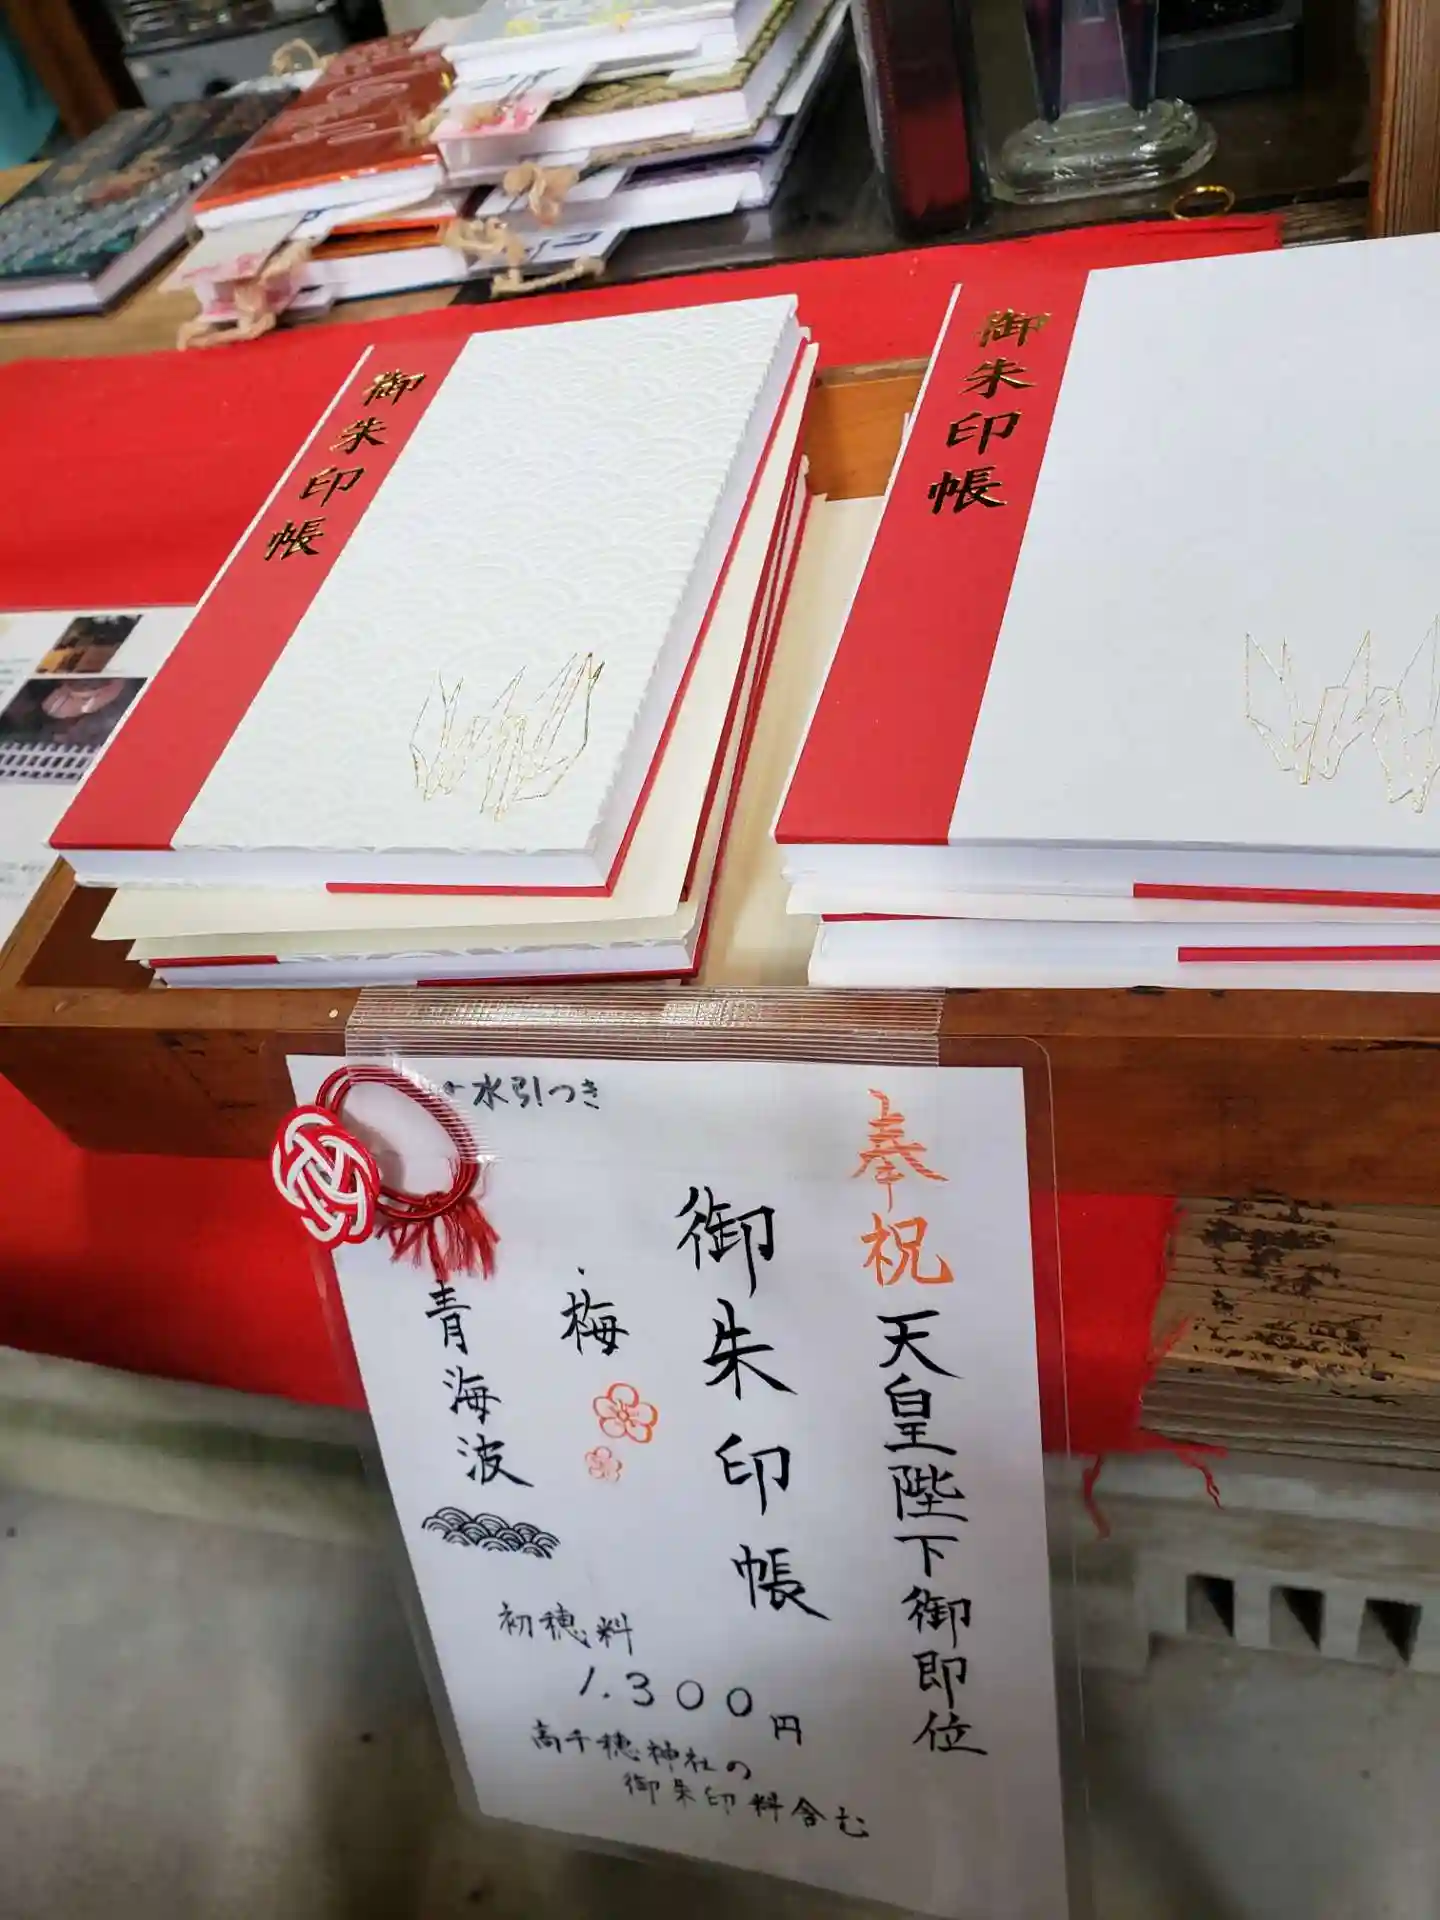 御朱印帳
御朱印帳
水引つき
奉祝 天皇陛下御即位
御朱印帳
梅
青海波
初穂料
1.300円
高千穂神社の
御朱印料含む